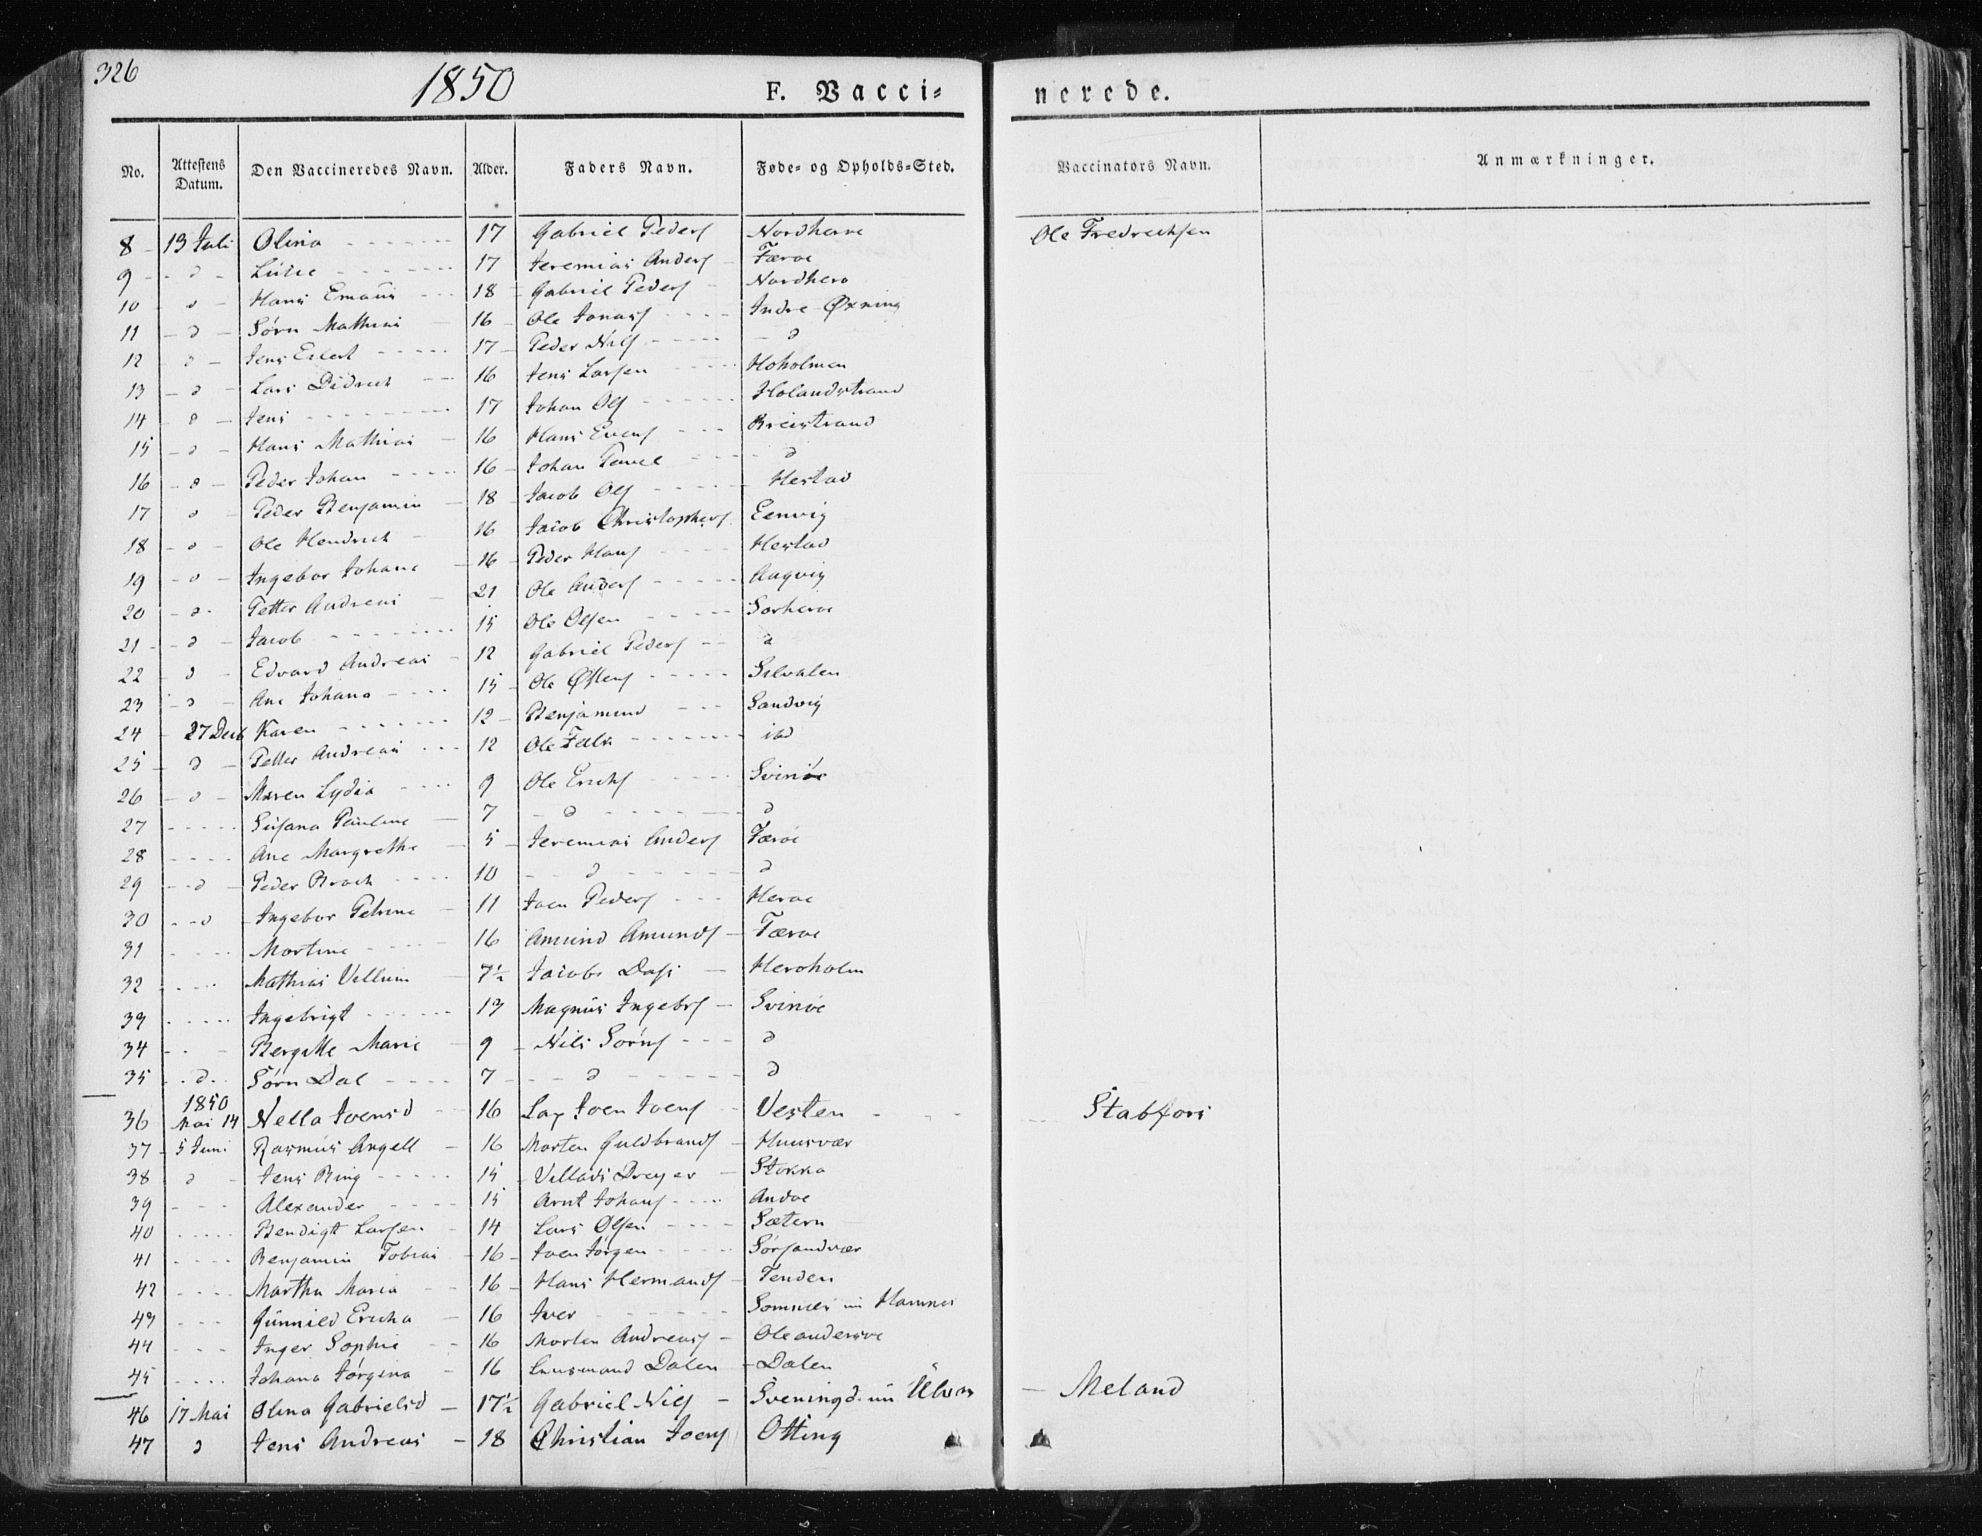 326 1850 F. Vacci= nerede.
No. Attestens Datum. Den Vaccineredes Navn. Alder. Faders Navn. Føde= og Opholds=Sted. Vaccinators Navn. Anmærkninger.
8 - 13 Juli Olina - - - 17 Gabriel Peders Nordherøe Ole Fredrechsen
9 - d - Lucie - - - 17 Jeremias Anders Færøe
10 d - Hans Emaus - - 18 Gabriel Peders - Nordherø
11 - d - Sørn Mathias - 16 - Ole Jonass - - - Indre Øxning
12 d - Jens Eilert - - - 17 - Peder Nils - - - d
13 - d - Lars Didrech - - 16 Jens Larsen - - - Hoholmen
14 - d - Jens - - - 17 Johan Ols - - - Holandstrand
15 - d - Hans Mathias - 16 Hans Evens - - - Breistrand
16 - d - Peder Johan - - - 16 - Johan - - - d
17 d - Peder Benjamin - 18 - Jacob Ols - - - Hestad
18 - d - Ole Hendrich - 16 Jacob Christophers Eenvig
19 - d - Ingebor Johane - 16 - Peder Hans - - - Hestad
20 - d - Petter Andreas - 21 Ole Anders - - - Aagvig
21 - d - Jacob - - - 15 Ole Olsen - - - Sørherøe
22 d - Edvard Andreas - 12 Gabriel Peders - - d
23 - d - Ane Johana - - - 15 - Ole - - - Selvalen
24 - 27 Decb Karen - - - 12 - Benjamend - - - Sandvig
25 - d - Petter Andreas - - - 12 Ole Falk - - - ibd
26 - d - Maren Lydia - - - 9 Ole Erichs - - - Svinøe
27 - - - Susana Pauline - 7 - d - - - d
28 - - - Ane Margrethe - 5 - Jeremias Anders Færøe
29 - - d - Peder Broch - - - 10 - - d - - - d
30 - - d - Ingebor Petrine - 11 Joen Peders - - - Herøe
31 - - - Martine - - - 16 Amund Amunds - Færøe
32 - - - Mathias Villum - 7½ Jacob Dass - Herøholm
33 - - - Ingebrigt - - - 13 Magnus Ingebrs - Svinøe
34 - - - Bergitte Marie - 9 - Nils Sørns - - - d
35 - d - Sørn Dal - - - 7 - - d - - - d
1850
36 Mai 14 Nella Joensd - - 16 Joen Joens - Vesten - - - Stabfors
37 - 5 Juni Rasmus Angell - 16 Morten Guldbrands - Huusvær
38 d - Jens Ring - - - 15 - Villads Dreyer - Stokka
39 - - - Alexander - - - 15 Arnt Johans - - - Andøe
40 - - - Bendigt Larsen - 14 Lars Olsen - - - Sætern
41 - - - Benjamin Tobias - 16 - Joen Jørgen - - - Sørsandvær
42 - - - Martha Maria - - 16 - Hans Hermands - Tenden
43 - - - Gunnild Ericha - 16 Iver - - - Somnes Hamnes
44 - - - Inger Sophie - - 16 Morten Andreass - Oleandersøe
45 - - - Johana Jørgina - 16 Dalen - Dalen
46 17 Mai Olina Gabrielsd - 17½ Gabriel Nils - Sveningd. Ulven - Meland
47 d Jens Andreas - 18 Christian Joens Otting